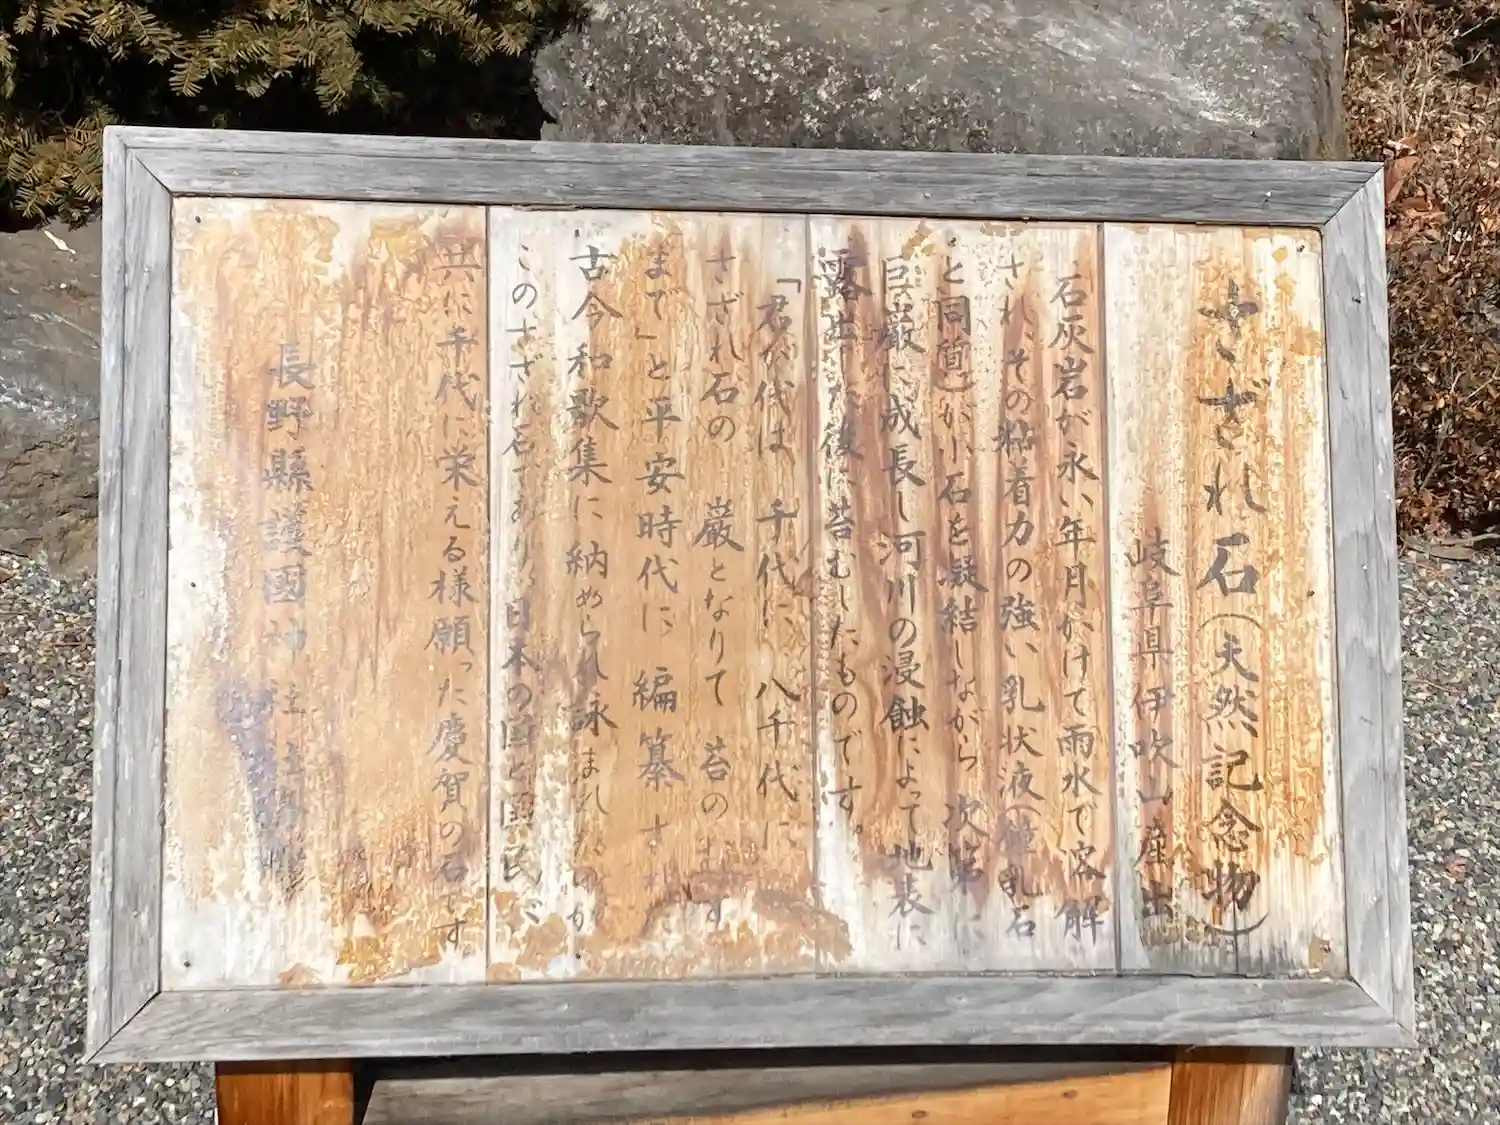 さざれ石(天然記念物)
岐阜県伊吹山産出
石灰岩が永い年月かけて雨水で溶解
され、その粘着力の強い乳状液(鍾乳石
と同質)が小石を凝結しながら 次第に
巨巌に成長し河川の浸蝕によって地表に
露出した後に苔むしたものです。
「君が代は 千代に 八千代に
さざれ石の 巌となりて 苔のむす
まで」と平安時代に 編纂された
古今和歌集に納められ詠まれたのが
このさざれ石であり、日本の国と国民が
共に千代に栄える様願った慶賀の石です。
長野縣護國神社